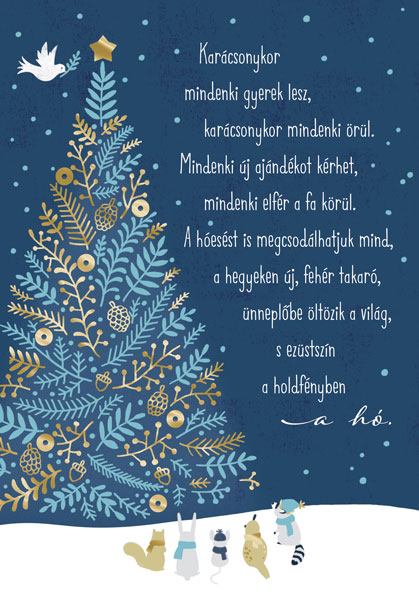 Karácsonykor
mindenki gyerek lesz,
karácsonykor mindenki örül.
Mindenki új ajándékot kérhet,
mindenki elfér a fa körül.
A hóesést is megcsodálhatjuk mind,
a hegyeken új, fehér takaró,
ünneplőbe öltözik a világ,
s ezüstszín
a holdfényben
a hó.